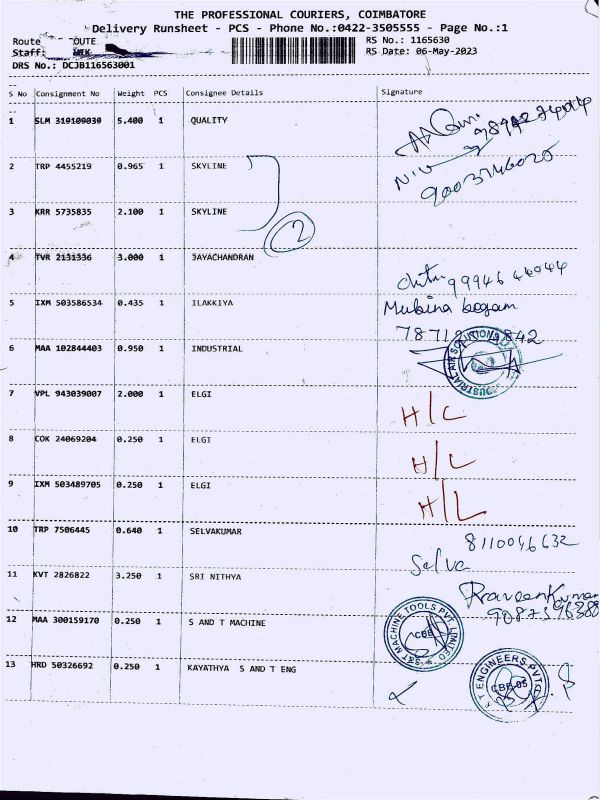 THE PROFESSIONAL COURIERS, COIMBATORE
Delivery Runsheet - PCS - Phone No.:0422-3505555 - Page No.:1
Route OUTE RS No.: 1165630
Staff: RS Date: 06-May-2023
DRS No.: DCJB116563001
S No Consignment No Weight PCS Consignee Details Signature
1 SLM 319109039 5.400 1 QUALITY
2 TRP 4455219 0.965 1 SKYLINE
9003746025
3 KRR 5735835 2.100 1 SKYLINE
2
4 TVR 2131336 3.000 1 JAYACHANDRAN
99946 44044
5 IXM 503586534 0.435 1 ILAKKIYA Mubina begam
6 MAA 102844403 0.950 1 INDUSTRIAL
7 VPL 943039007 2.000 1 ELGI H/C
8 COK 24069204 0.250 1 ELGI H/L
9 IXM 503489705 0.250 1 ELGI H/L
10 TRP 7506445 0.640 1 SELVAKUMAR 8110046632
Selva
11 KVT 2826822 3.250 1 SRI NITHYA Praveenkumar
12 MAA 300159170 0.250 1 S AND T MACHINE S&T MACHINE TOOLS PVT. LIMITED CBE
13 HRD 50326692 0.250 1 KAYATHYA S AND T ENG T ENGINEERS PVT CBE-05